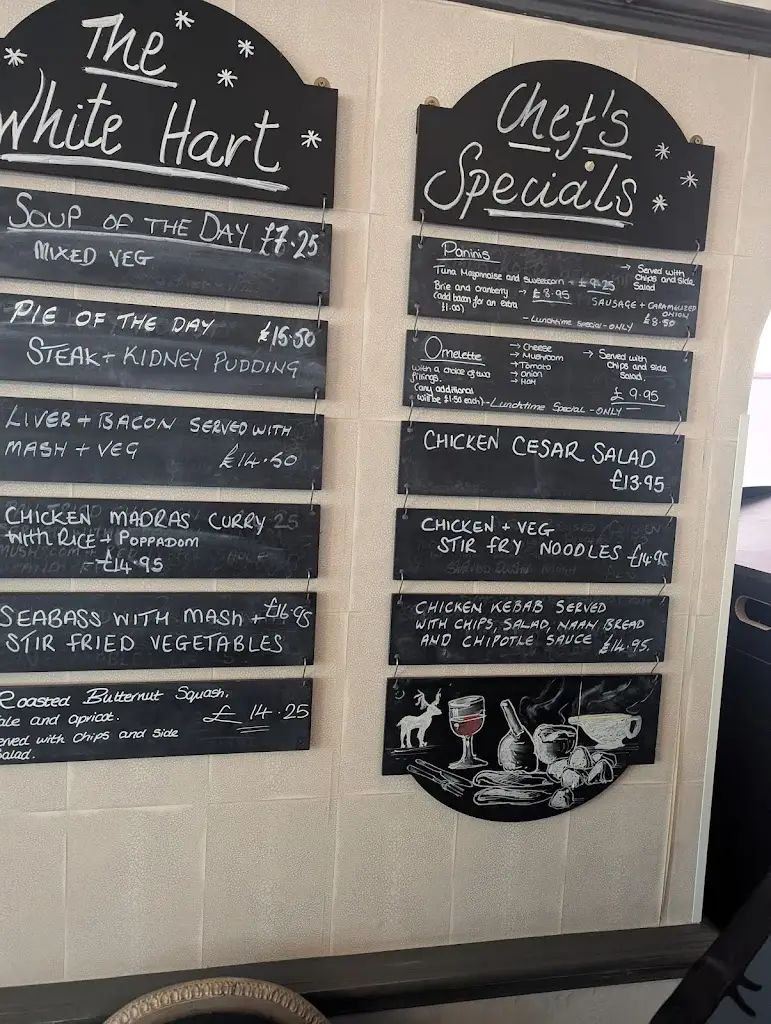 The
White Hart
SOUP OF THE DAY £7.25
MIXED VEG
PIE OF THE DAY £15.50
STEAK + KIDNEY PUDDING
LIVER + BACON SERVED WITH
MASH + VEG £14.50
CHICKEN MADRAS CURRY
with RICE + POPPADOM
£14.95
SEABASS WITH MASH + £16.95
STIR FRIED VEGETABLES
Roasted Butternut Squash,
and apricot. £14.25
Served with Chips and Side
Salad.
Chef's
Specials
Paninis
Tuna Mayonnaise and Sweetcorn → £9.25
Brie and Cranberry → £8.95
(add bacon for an extra
£1.00)
→ Served with
Chips and side
Salad
SAUSAGE + CARAMELIZED
ONION
£8.50
- Lunchtime Special - ONLY
Omelette
with a choice of two
fillings.
(any additional
will be £1.50 each)
→ Cheese
→ Mushroom
→ Tomato
→ Onion
→ Ham
→ Served with
Chips and side
Salad.
£9.95
- Lunchtime Special - ONLY
CHICKEN CESAR SALAD
£13.95
CHICKEN + VEG
STIR FRY NOODLES £14.95
CHICKEN KEBAB SERVED
WITH CHIPS, SALAD, NAAN BREAD
AND CHIPOTLE SAUCE £14.95.